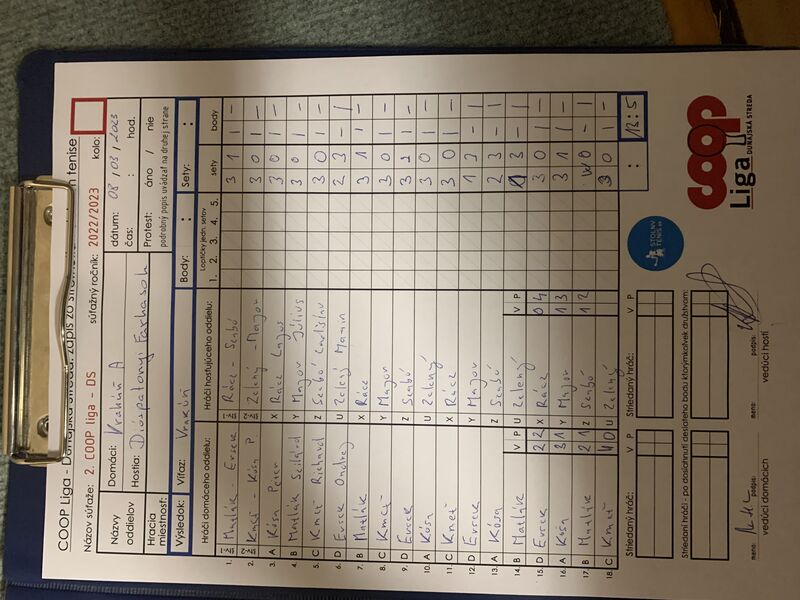 COOP Liga - Dunajská Streda: zápis zo tenise
Názov súťaže: 2. COOP liga - DS súťažný ročník: 2022/2023 kolo:
Názvy oddielov
Domáci: Vrakúň A
Hostia:
dátum: 08,03,2023
čas: : hod.
Hracia miestnosť:
Protest: áno / nie
podrobný popis uvádzať na druhej strane
Výsledok: Víťaz: Vrakúň Body: : Sety: :
Hráči domáceho oddielu: Hráči hosťujúceho oddielu: Loptičky jedn. setov sety body
1. 2. 3. 4. 5.
1. Matlák - Ercsek Rácz - Szabó 3 1 1 -
2. Kmeť - Kósa P. Zelený - Major 3 0 1 -
3. A Kósa Peter X Rácz Lajos 3 0 1 -
4. B Matlák Y Major Július 3 0 1 -
5. C Kmeť Richard Z Szabó 3 0 1 -
6. D Ercsek Ondrej U Zelený 2 3 - 1
7. B Matlák X Rácz 3 1 1 -
8. C Kmeť Y Major 3 0 1 -
9. D Ercsek Z Szabó 3 1 1 -
10. A Kósa U Zelený 3 0 1 -
11. C Kmeť X Rácz 3 0 1 -
12. D Ercsek Y Major 1 3 - 1
13. A Kósa Z Szabó 2 3 - 1
14. B Matlák V P U Zelený V P 3 - 1
15. D Ercsek 2 2 X Rácz 0 4 3 0 1 -
16. A Kósa 3 1 Y Major 1 3 3 1 1 -
17. B Matlák 2 1 Z Szabó 1 2
18. C Kmeť 4 0 U Zelený 3 0 1 -
: 13:5
Striedaný hráč: V P Striedaný hráč: V P
Striedaní hráči - po dosiahnutí desiateho bodu ktorýmkoľvek družstvom:
meno: podpis: meno: podpis:
vedúci domácich vedúci hostí
STOLNÝ TENIS
coop
Liga
DUNAJSKÁ STREDA